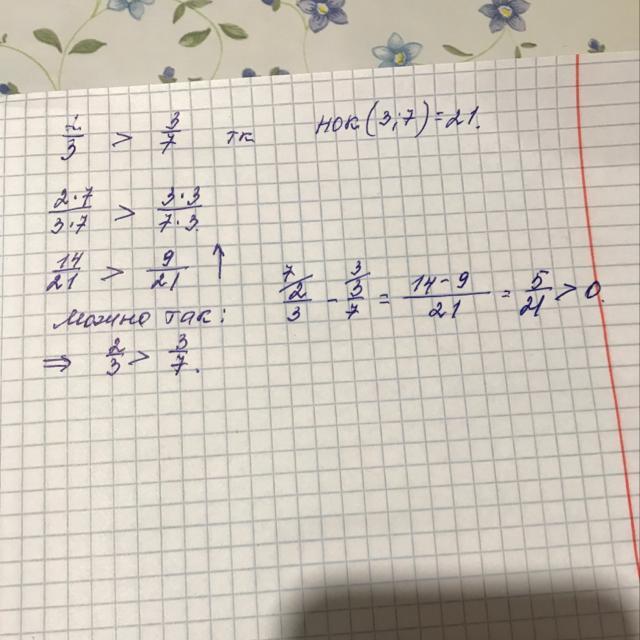 2/3 > 3/7 тк НОК(3;7)=21.
2·7/3·7 > 3·3/7·3
14/21 > 9/21 ↑
Можно так: 7/ 2/3 - 3/ 3/7 = 14-9/21 = 5/21 > 0.
⇒ 2/3 > 3/7.